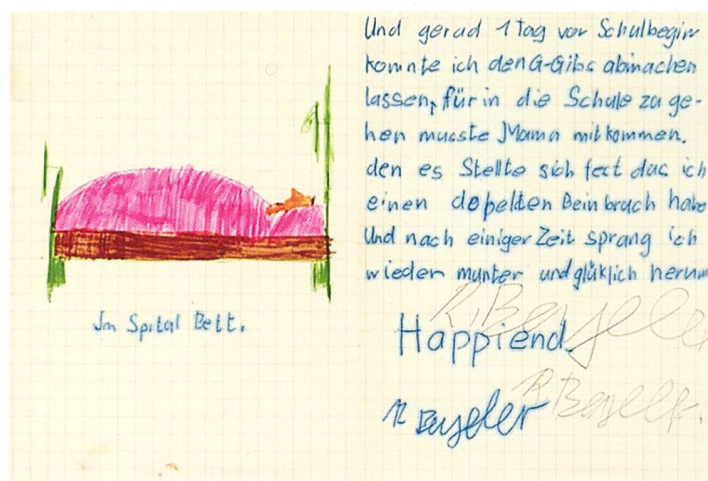 Und gerad 1 Tag vor Schulbegin
konnte ich den G-Gibs abmachen
lassen, für in die Schule zu ge-
hen musste Mama mitkommen.
den es Stellte sich fest das ich
einen dopelten Beinbruch habe
Und nach einiger Zeit sprang ich
wieder munter und glüklich herum
Happiend
R Bayeler
Im Spital Bett.